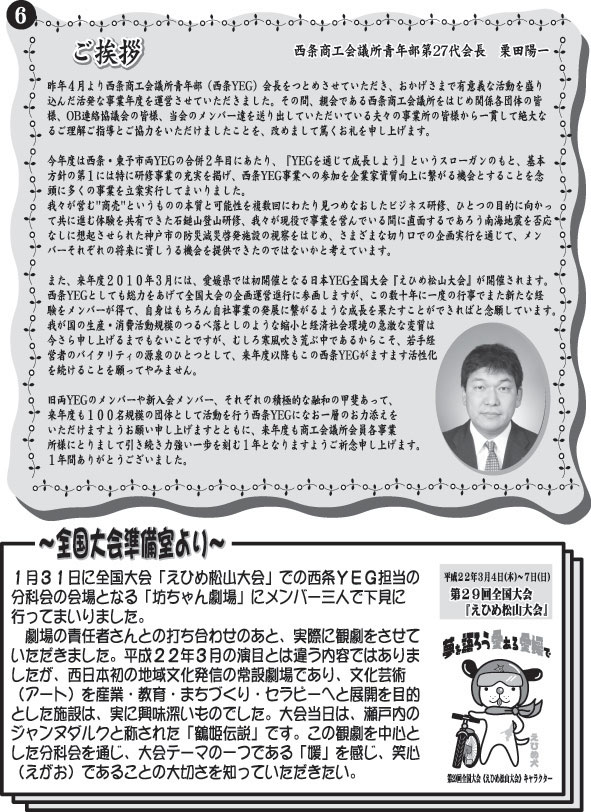 6
ご挨拶
西条商工会議所青年部第27代会長　栗田陽一
昨年4月より西条商工会議所青年部（西条YEG）会長をつとめさせていただき、おかげさまで有意義な活動を盛り
込んだ活発な事業年度を運営させていただきました。その間、親会である西条商工会議所をはじめ関係各団体の皆
様、OB連絡協議会の皆様、当会のメンバー達を送り出していただいている夫々の事業所の皆様から一貫して絶大な
るご理解ご指導とご協力をいただけましたことを、改めまして篤くお礼を申し上げます。
今年度は西条・東予市両YEGの合併2年目にあたり、『YEGを通じて成長しよう』というスローガンのもと、基本
方針の第1には特に研修事業の充実を掲げ、西条YEG事業への参加を企業家資質向上に繋がる機会とすることを念
頭に多くの事業を立案実行してまいりました。
我々が営む"商売"というものの本質と可能性を複数回にわたり見つめなおしたビジネス研修、ひとつの目的に向かっ
て共に進む体験を共有できた石鎚山登山研修、我々が現役で事業を営んでいる間に直面するであろう南海地震を否応
なしに想起させられた神戸市の防災減災啓発施設の視察をはじめ、さまざまな切り口での企画実行を通じて、メン
バーそれぞれの将来に資しうる機会を提供できたのではないかと考えています。
また、来年度2010年3月には、愛媛県では初開催となる日本YEG全国大会『えひめ松山大会』が開催されます。
西条YEGとしても総力をあげて全国大会の企画運営進行に参画しますが、この数十年に一度の行事でまた新たな経
験をメンバーが得て、自身はもちろん自社事業の発展に繋がるような成長を果たすことができればと念願しています。
我が国の生産・消費活動規模のつるべ落としのような縮小と経済社会環境の急激な変貌は
今さら申し上げるまでもないことですが、むしろ寒風吹き荒ぶ中であるからこそ、若手経
営者のバイタリティの源泉のひとつとして、来年度以降もこの西条YEGがますます活性化
を続けることを願ってやみません。
旧両YEGのメンバーや新入会メンバー、それぞれの積極的な融和の甲斐あって、
来年度も100名規模の団体として活動を行う西条YEGになお一層のお力添えを
いただけますようお願い申し上げますとともに、来年度も商工会議所会員各事業
所様にとりまして引き続き力強い一歩を刻む1年となりますようご祈念申し上げます。
1年間ありがとうございました。
～全国大会準備室より～
1月31日に全国大会「えひめ松山大会」での西条YEG担当の
分科会の会場となる「坊ちゃん劇場」にメンバー三人で下見に
行ってまいりました。
　劇場の責任者さんとの打ち合わせのあと、実際に観劇をさせて
いただきました。平成22年3月の演目とは違う内容ではありまし
たが、西日本初の地域文化発信の常設劇場であり、文化芸術
（アート）を産業・教育・まちづくり・セラピーへと展開を目的
とした施設は、実に興味深いものでした。大会当日は、瀬戸内の
ジャンヌダルクと称された「鶴姫伝説」です。この観劇を中心と
した分科会を通じ、大会テーマの一つである「媛」を感じ、笑心
（えがお）であることの大切さを知っていただきたい。
平成22年3月4日(木)～7日(日)
第29回全国大会
『えひめ松山大会』
夢を語ろう愛ある愛媛で
えひめ犬
第29回全国大会《えひめ松山大会》キャラクター